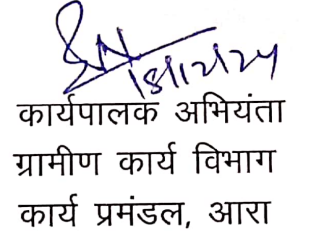 18/12/24
कार्यपालक अभियंता
ग्रामीण कार्य विभाग
कार्य प्रमंडल, आरा